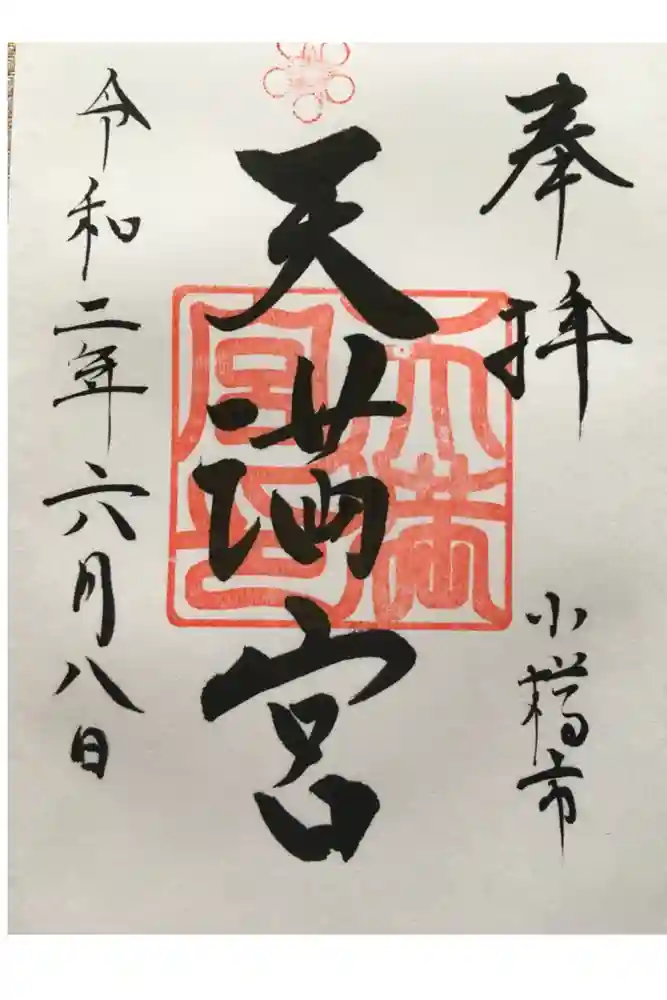 奉拝
小樽市
天満宮
天満宮印
令和二年六月八日